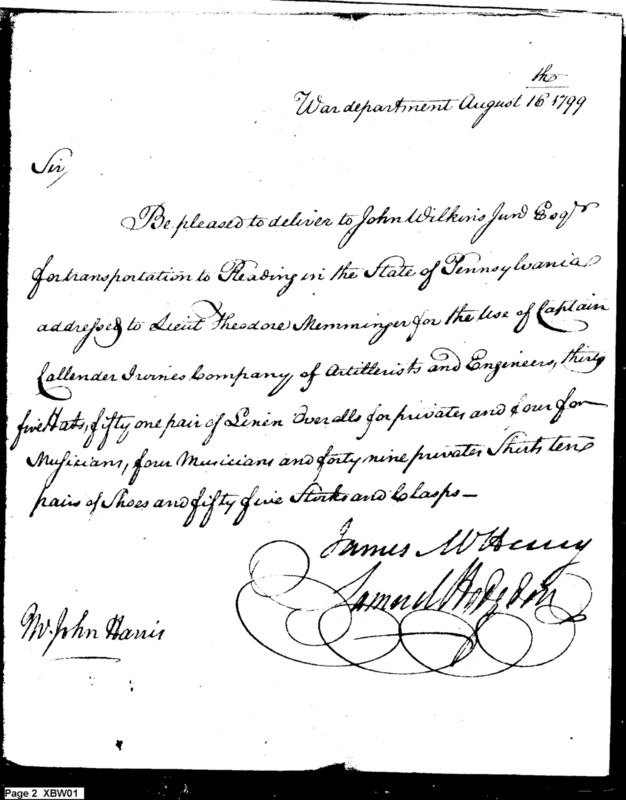 War department August 16th 1799
Sir,
Be pleased to deliver to John Wilkins Junr Esqr
for transportation to Reading in the State of Pennsylvania
addressed to Lieut Theodore Memminger for the Use of Captain
Callender Irvines Company of Artillerists and Engineers, thirty
five Hats, fifty one pair of Linen Overalls for privates and four for
Musicians, four Musicians and forty nine privates Shirts ten
pairs of Shoes and fifty five Stocks and Clasps—
James McHenry
Samuel Hodgdon
Mr. John Harris
Page 2 XBW01